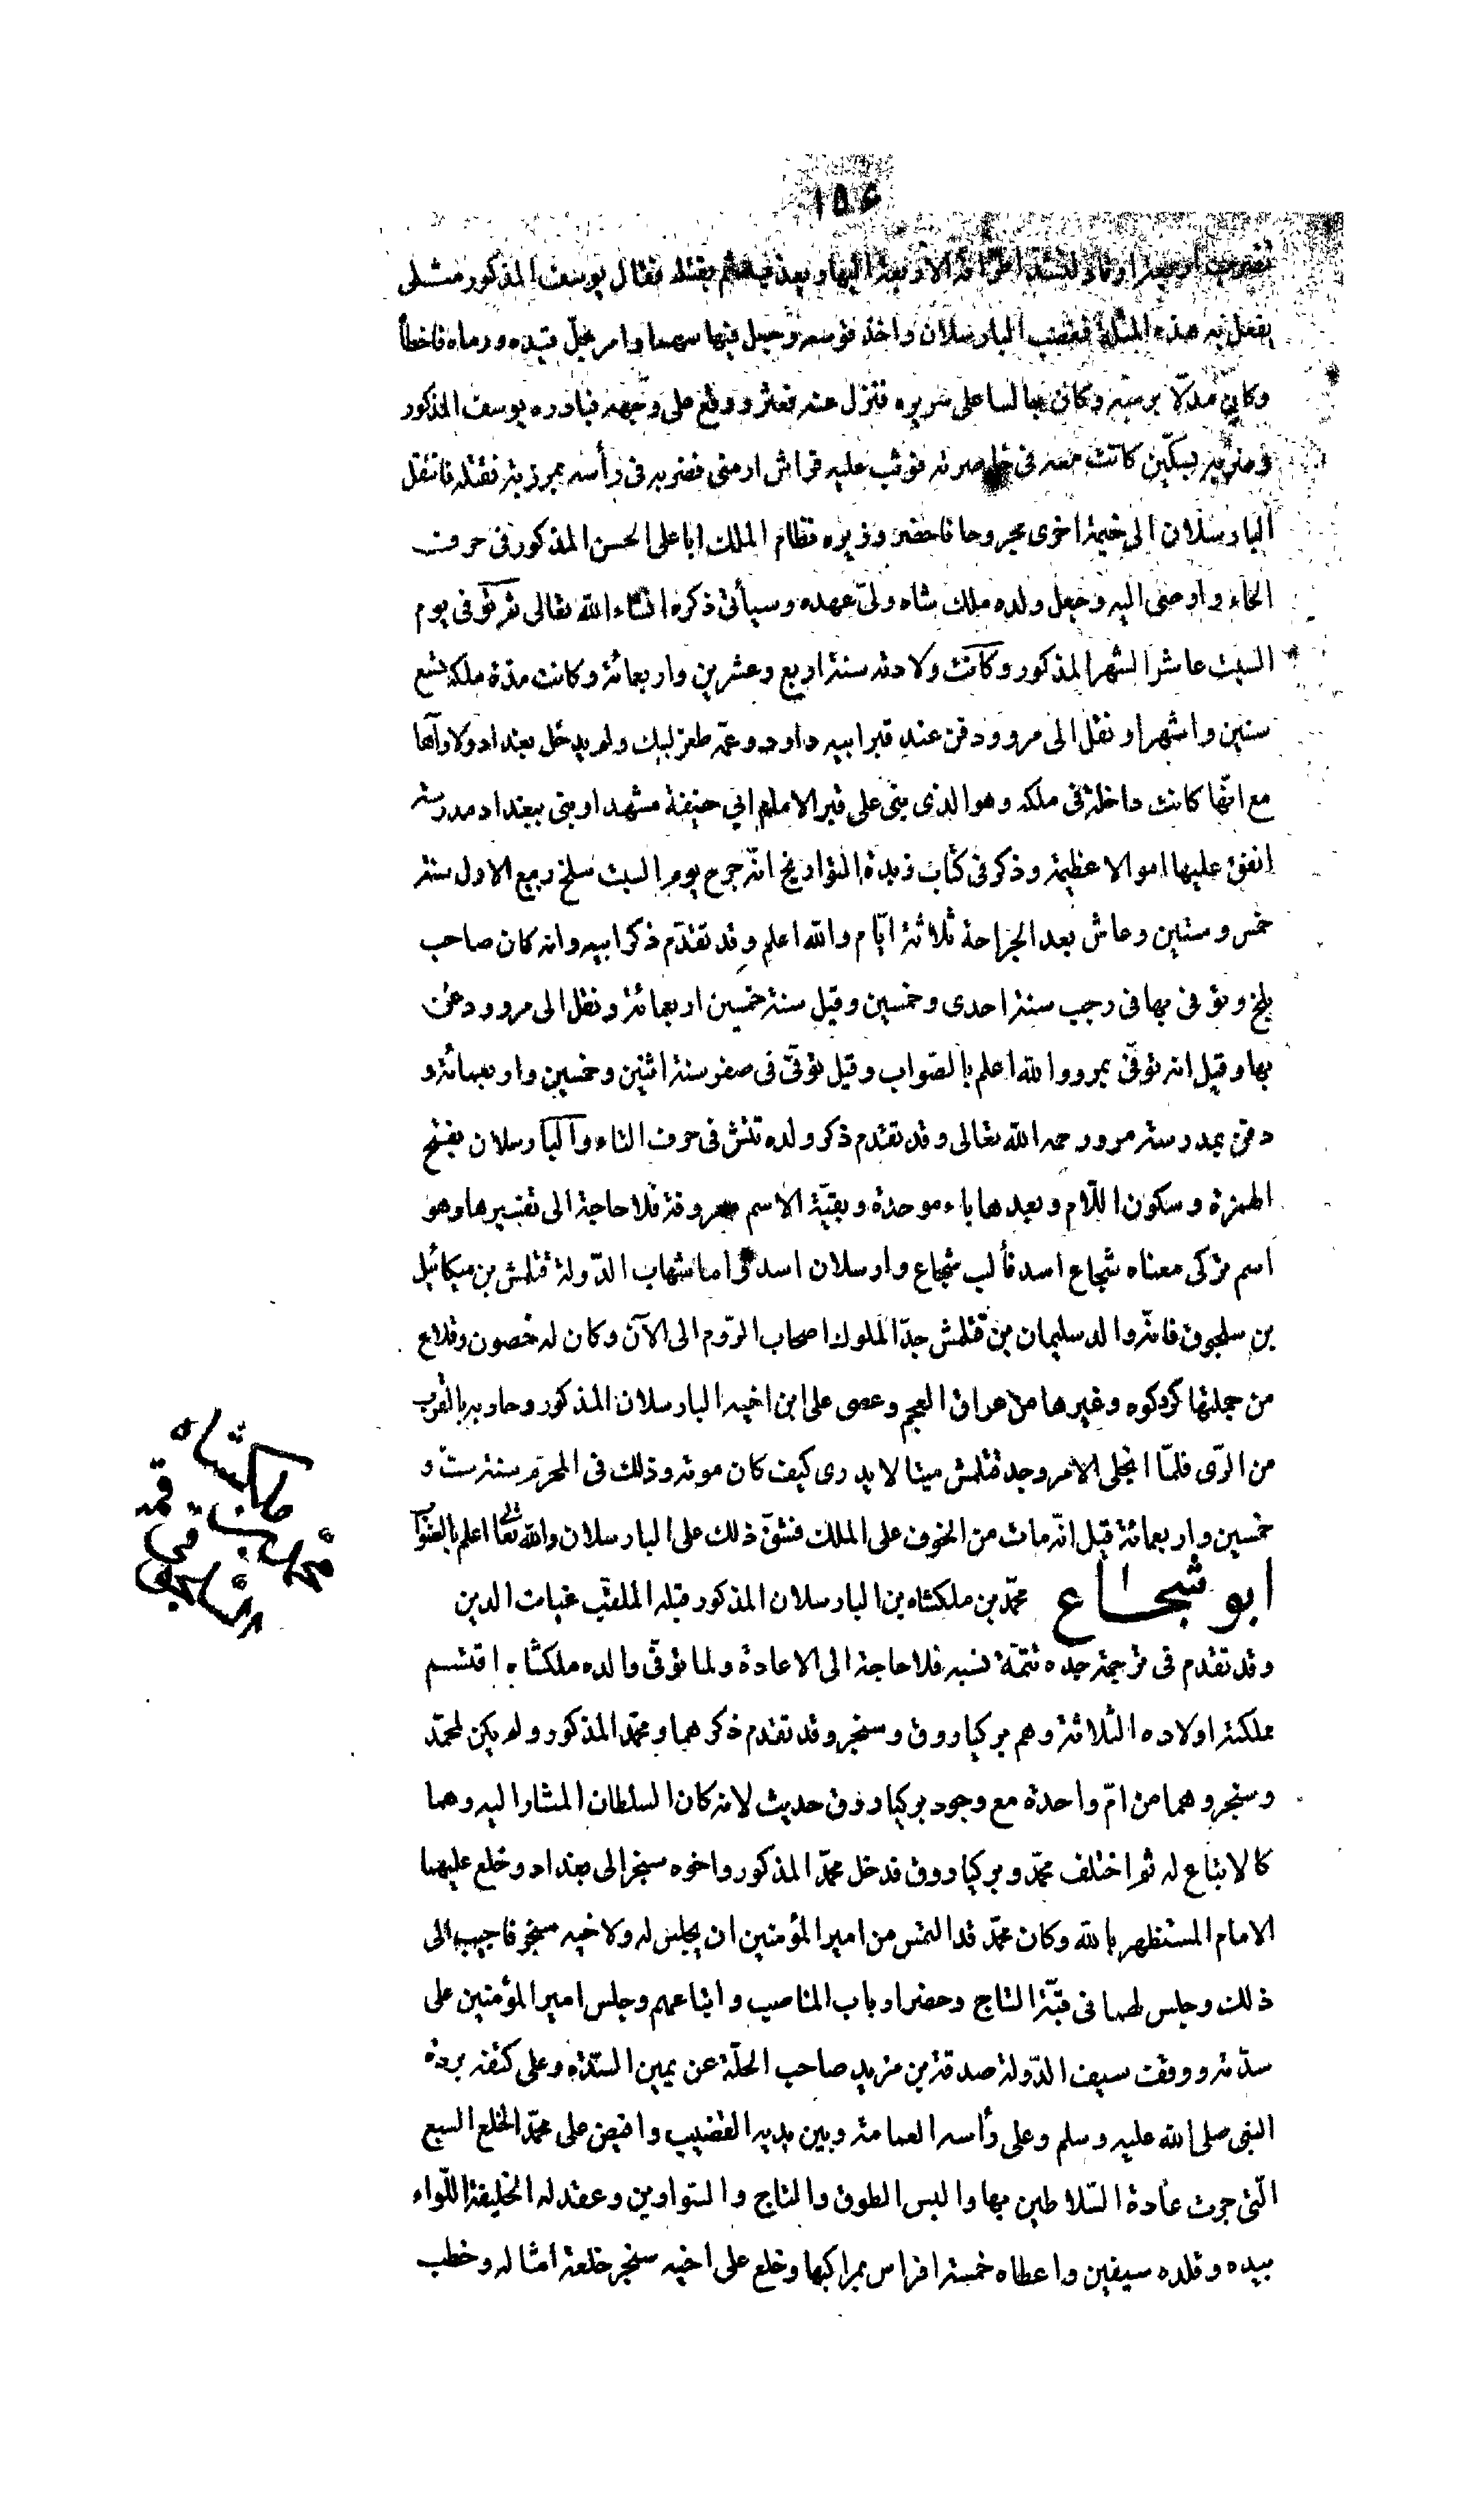 ١٥٤
تضرب اربعة اوتاد لتشد اطرافه الاربعة اليها ويعذبه ثم يقتله فقال يوسف المذكور مثلى
يفعل به هذه المثلة فغضب الب ارسلان واخذ قوسه وجعل فيها سهما وامر بحلّ قيده ورماه فاخطأ
وكان مدلّا برميه وكان جالسا على سريره فنزل عنه فعثر ووقع على وجهه فبادره يوسف المذكور
وضربه بسكّين كانت معه فى خاصرته فوثب عليه فراش ارمنى فضربه فى رأسه بمرزبة فقتله فانتقل
الب ارسلان الى خيمة اخرى مجروحا فاحضر وزيره نظام الملك ابا على الحسن المذكور فى حرف
الحاء واوصى اليه وجعل ولده ملك شاه ولىّ عهده وسيأتى ذكره انشاء الله تعالى ثم توفى يوم
السبت عاشر الشهر المذكور وكانت ولادته سنة اربع وعشرين واربعمائة وكانت مدة ملكه تسع
سنين واشهرا ونقل الى مرو ودفن عند قبر ابيه داود وعمّه طغرلبك ولم يدخل بغداد ولا رآها
مع انّها كانت داخلة فى ملكه وهو الذى بنى على قبر الامام ابي حنيفة مشهدا وبنى ببغداد مدرسة
انفق عليها اموالا عظيمة وذكر فى كتاب زبدة التواريخ انّه جرح يوم السبت سلخ ربيع الاول سنة
خمس وستين وعاش بعد الجراحة ثلاثة ايّام والله اعلم وقد تقدّم ذكر ابيه وانه كان صاحب
بلخ وتوفى بها فى رجب سنة احدى وخمسين وقيل سنة خمسين اربعمائة ونقل الى مرو ودفن
بها وقيل انه توفّى بمرو والله اعلم بالصّواب وقيل توفّى فى صفر سنة اثنين وخمسين واربعمائة و
دفن بمدرسة مرو رحمه الله تعالى وقد تقدم ذكر ولده تتش فى حرف التاء والب ارسلان بفتح
الهمزة وسكون اللّام وبعدها باء موحدة وبقيّة الاسم معروفة فلا حاجة الى تفسيرها وهو
اسم تركى معناه شجاع اسد فألب شجاع وارسلان اسد واما شهاب الدّولة قتلمش بن ميكائيل
بن سلجوق فانّه والد سليمان بن قتلمش جدّ الملوك اصحاب الرّوم الى الآن وكان له حصون وقلاع
من جملتها كردكوه وغيرها من عراق العجم وعصى على ابن اخيه الب ارسلان المذكور وحاربه بالقرب
من الرّى فلمّا انجلى الامر وجد قتلمش ميتا لا يدرى كيف كان موته وذلك فى المحرّم سنة ستّ و
خمسين واربعمائة قيل انّه مات من الخوف على الملك فشقّ ذلك على الب ارسلان والله تعالى اعلم بالصّواب
ابو شجاع محمّد بن ملكشاه بن الب ارسلان المذكور قبله الملقّب غياث الدين
وقد تقدم فى ترجمة جدّه تتمّة نسبه فلا حاجة الى الاعادة ولما توفّى والده ملكشاه اقتسم
مملكته اولاده الثلاثة وهم بركياروق وسنجر وقد تقدم ذكرهما ومحمّد المذكور ولم يكن لمحمّد
وسنجر وهما من امّ واحدة مع وجود بركياروق حديث لانه كان السلطان المشار اليه وهما
كالاتباع له ثم اختلف محمّد وبركياروق فدخل محمّد المذكور واخوه سنجر الى بغداد وخلع عليهما
الامام المستظهر بالله وكان محمّد قد التمس من امير المؤمنين ان يجلس له ولاخيه سنجر فاجيب الى
ذلك وجلس لهما فى قبّة التاج وحضر ارباب المناصب واتباعهم وجلس امير المؤمنين على
سدّته ووقف سيف الدّولة صدقة بن مزيد صاحب الحلّة عن يمين السّدّة وعلى كتفه بردة
النبى صلى الله عليه وسلم وعلى رأسه العمامة وبين يديه القضيب وافيض على محمّد الخلع السبع
الّتى جرت عادة السّلاطين بها والبس الطوق والتاج والسّوارين وعقد له الخليفة اللّواء
بيده وقلده سيفين واعطاه خمسة افراس بمراكبها وخلع على اخيه سنجر خلعة امثاله وخطب
محمد بن
ملكشاه
السلجوقى